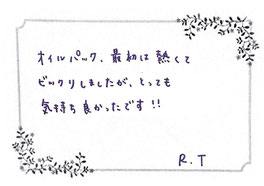 オイルパック、最初は熱くて
ビックリしましたが、とっても
気持ち良かったです!!
R.T